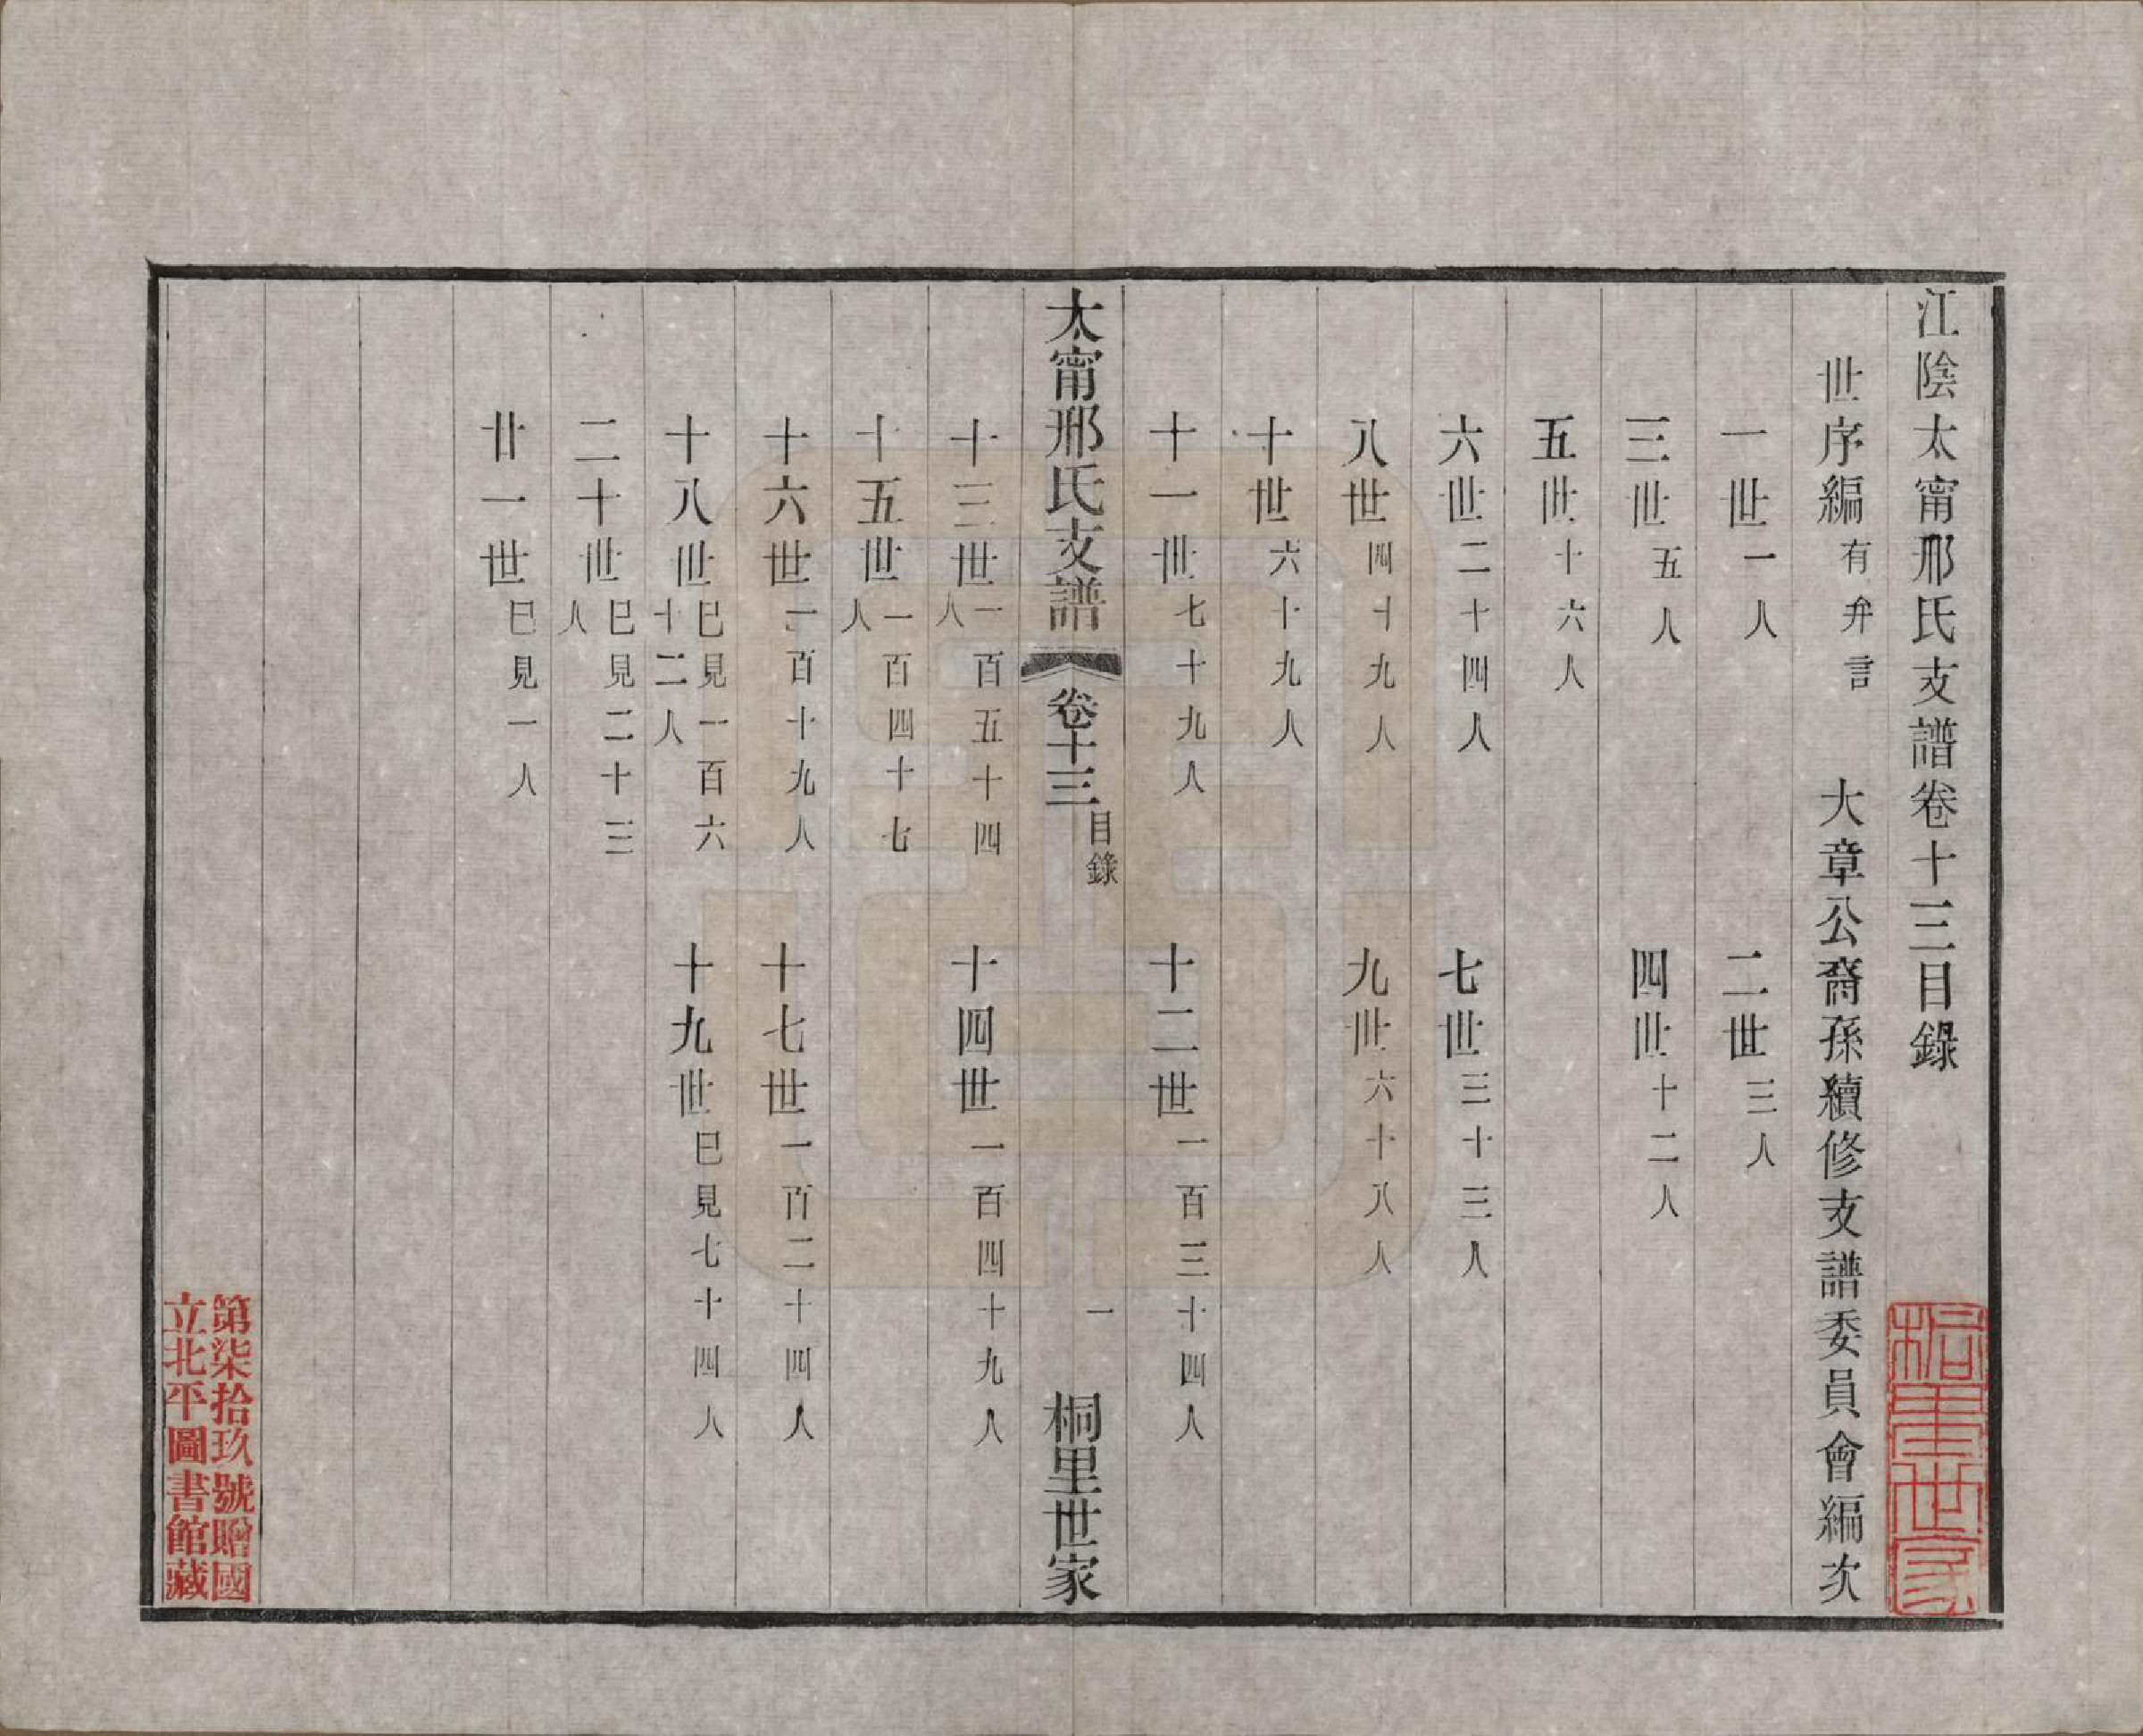 江陰太甯邢氏支譜卷十三目錄
世序編有弁言　大章公裔孫續修支譜委員會編次
一世一人　二世三人
三世五人　四世十二人
五世十六人
六世二十四人　七世三十三人
八世四十九人　九世六十八人
十世六十九人
十一世七十九人　十二世一百三十四人
太甯邢氏支譜　卷十三　目錄　一　桐里世家
十三世一百五十四人　十四世一百四十九人
十五世一百四十七人
十六世一百十九人　十七世一百二十四人
十八世已見一百六十二人　十九世已見七十四人
二十世已見二十三人
廿一世已見一人
桐里世家
第柒拾玖號贈國
立北平圖書館藏